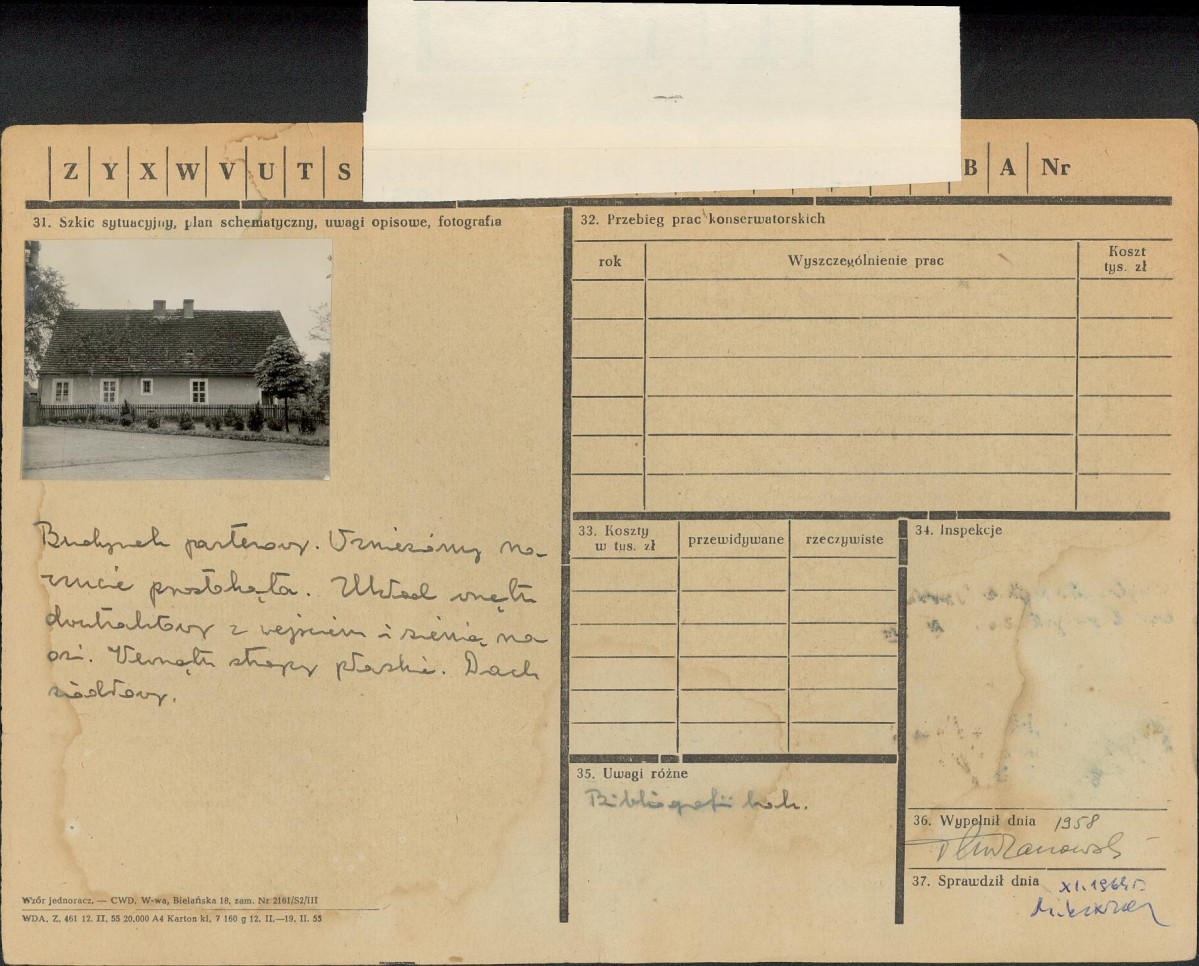 Z Y X W V U T S B A Nr
31. Szkic sytuacyjny, plan schematyczny, uwagi opisowe, fotografia
Budynek parterowy. Wzniesiony na
rzucie prostokąta. Układ wnętrz
dwutraktowy z wejściem i sienią na
osi. Wewnątrz stropy płaskie. Dach
siodłowy.
Wzór jednoracz. — CWD, W-wa, Bielańska 18, zam. Nr 2161/S2/III
WDA. Z. 461 12. II. 55 20.000 A4 Karton kl. 7 160 g 12. II.—19. II. 55
32. Przebieg prac konserwatorskich
rok Wyszczególnienie prac Koszt
tys. zł
33. Koszty
w tys. zł przewidywane rzeczywiste
34. Inspekcje
35. Uwagi różne
Bibliografii brak.
36. Wypełnił dnia 1958
37. Sprawdził dnia XI.1964r.